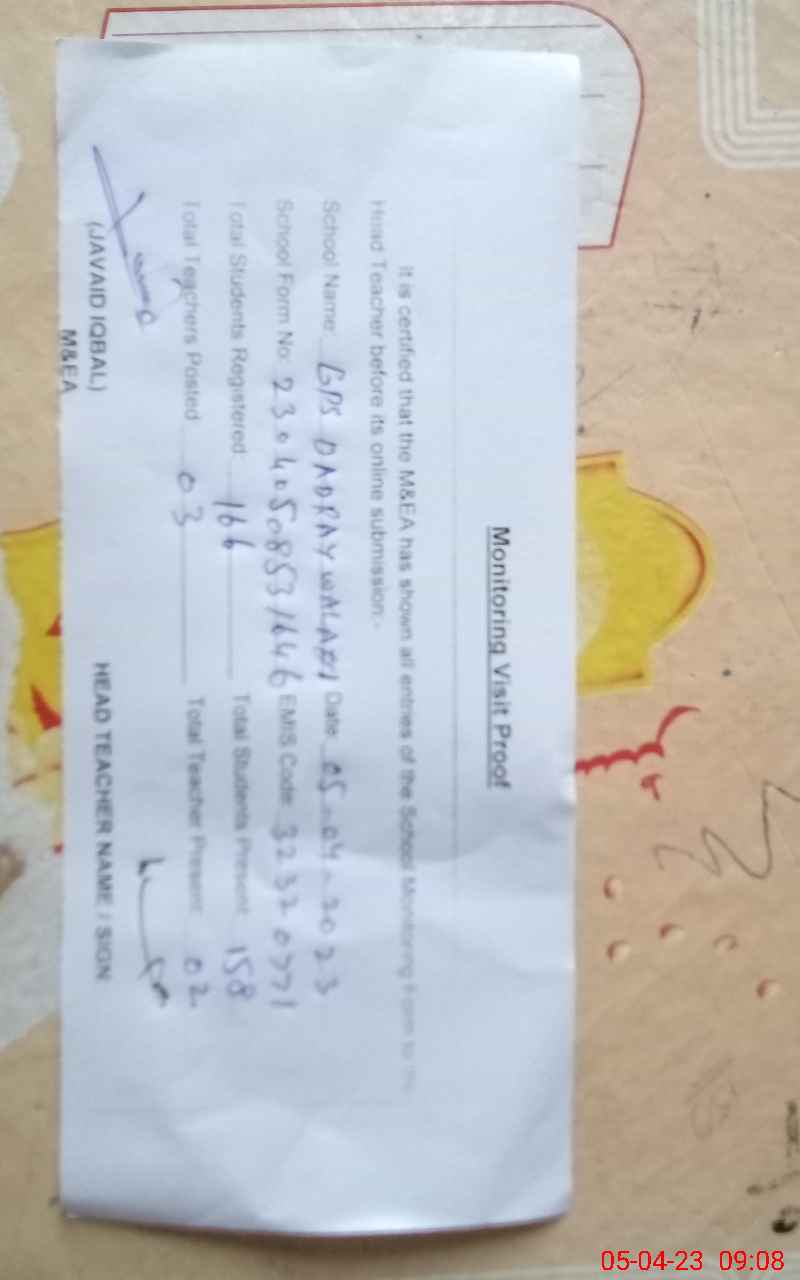 Monitoring Visit Proof
It is certified that the M&EA has shown all entries of the School Monitoring Form to the
Head Teacher before its online submission:-
School Name: GPS DADRAY WALAHI Date 05-04-2023
School Form No: 23040508531646 EMIS Code: 32320771
Total Students Registered 166 Total Students Present 158
Total Teachers Posted 03 Total Teacher Present 02
(JAVAID IQBAL) HEAD TEACHER NAME / SIGN
M&EA
05-04-23 09:08